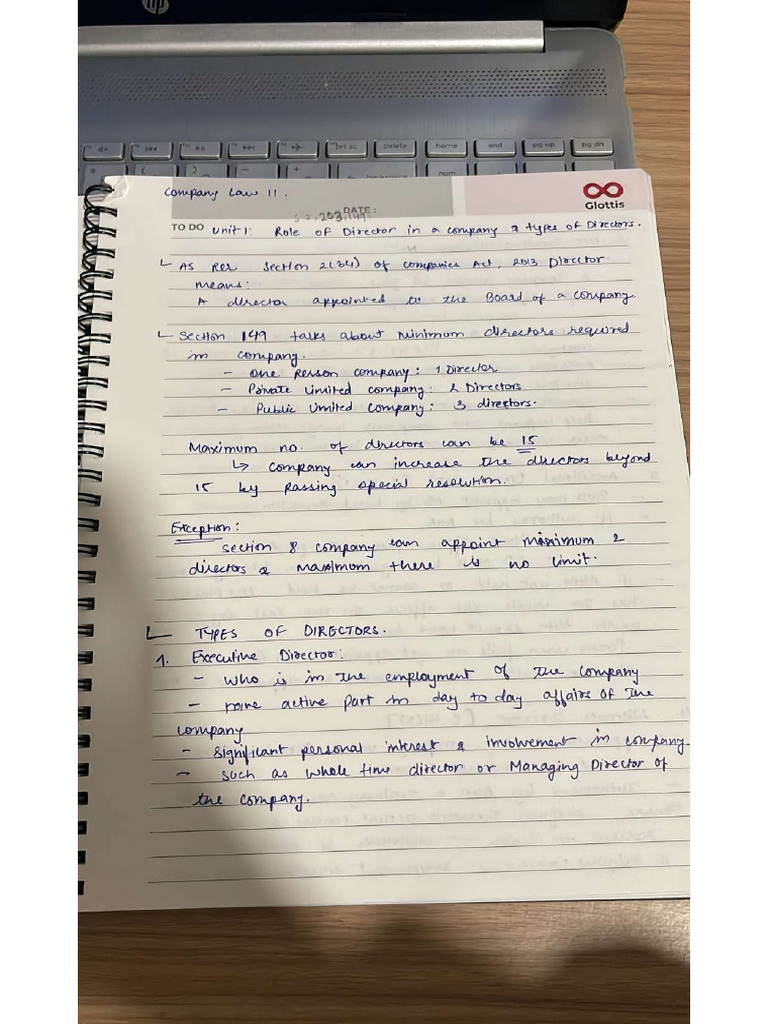 hp
delete
home
end
pg up
pg dn
num
Company Law II.
Glottis
DATE:
203, 149
TO DO Unit 1: Role of Director in a company & types of Directors.
As per Section 2(34) of Companies Act, 2013 Director
means:
A director appointed to the Board of a company.
Section 149 talks about minimum directors required
in company.
- One Person Company: 1 Director
- Private Limited Company: 2 Directors
- Public Limited Company: 3 directors.
Maximum no. of directors can be 15
↳ company can increase the directors beyond
15 by passing special resolution.
Exception:
Section 8 company can appoint minimum 2
directors & maximum there is no limit.
TYPES OF DIRECTORS.
1. Executive Director:
- who is in the employment of the company
- active part in day to day affairs of the
company
- significant personal interest & involvement in company.
- such as whole time director or Managing Director of
the company.